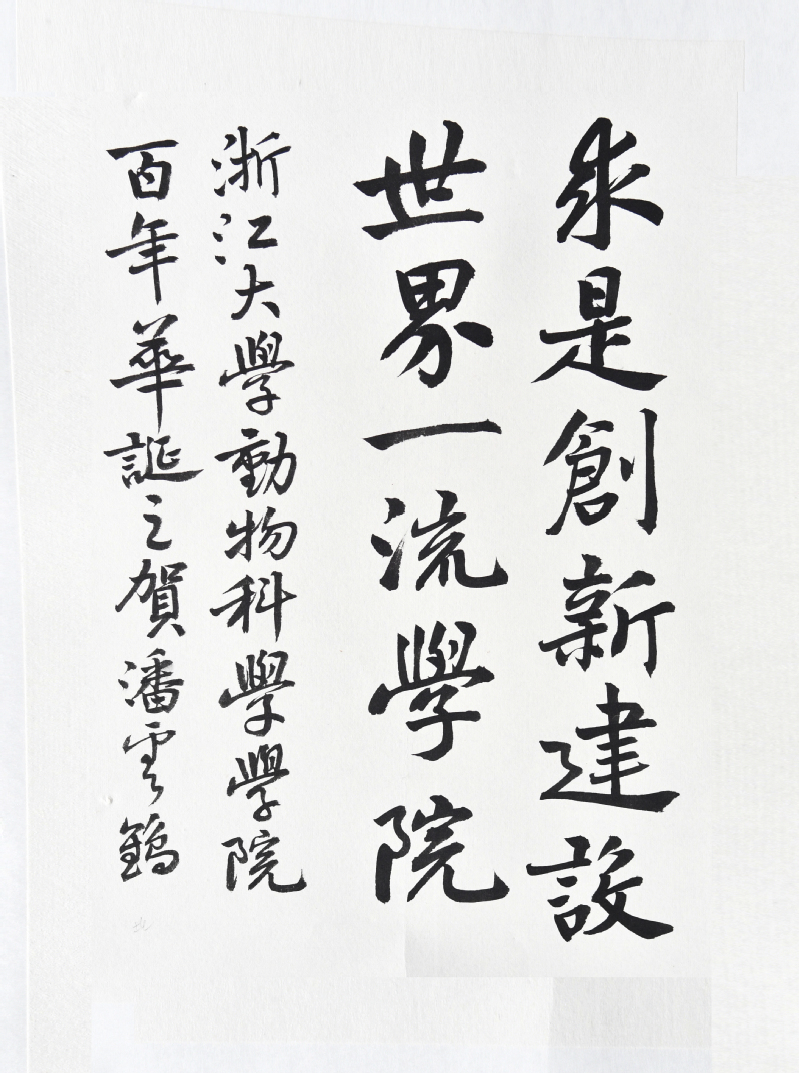 求是創新建設
世界一流學院
浙江大學動物科學學院
百年華誕之賀潘雲鶴